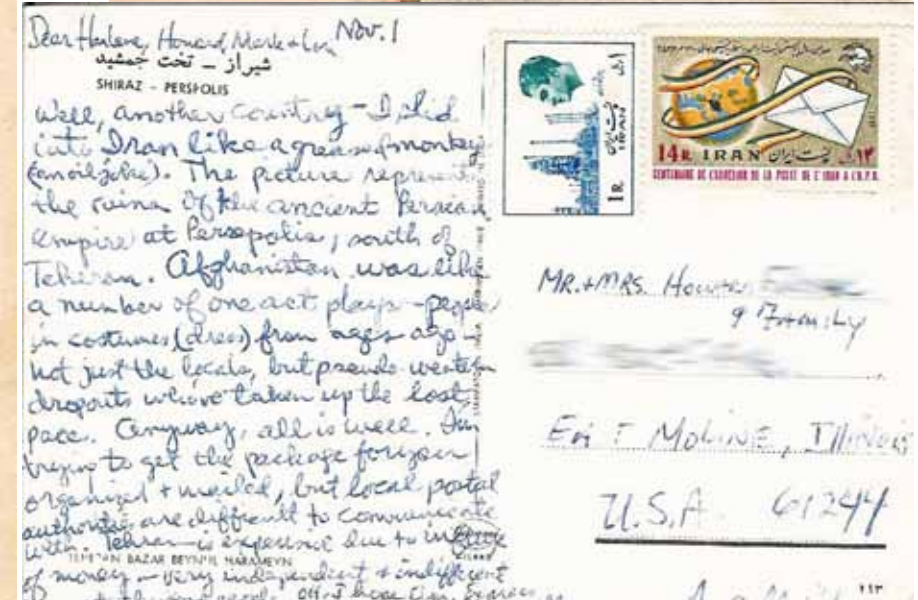 Dear Harlene, Howard, Mark + Nov. 1
شیراز ــ تخت جمشید
SHIRAZ - PERSPOLIS
Well, another country - I slid
into Iran like a greased monkey
(an oil joke). The picture represents
the ruins of the ancient Persian
empire at Persepolis, south of
Teheran. Afghanistan was like
a number of one act plays - people
in costumes (dress) from ages ago -
not just the locals, but pseudo western
dropouts who've taken up the lost
pace. Anyway, all is well. I'm
trying to get the package for you
organized + mailed, but local postal
authorities are difficult to communicate
with. Tehran is expensive due to
TEHERAN BAZAR BEYN'IL HARAMEYN
of money - very independent + indifferent
1R
14R IRAN پست ایران ۱۴
CENTENAIRE DE L'ADHESION DE LA POSTE DE L'IRAN A L'U.P.U.
MR. + MRS. Howard
& Family
East MOLINE, ILLINOIS
U.S.A. 61244
۱۱۳